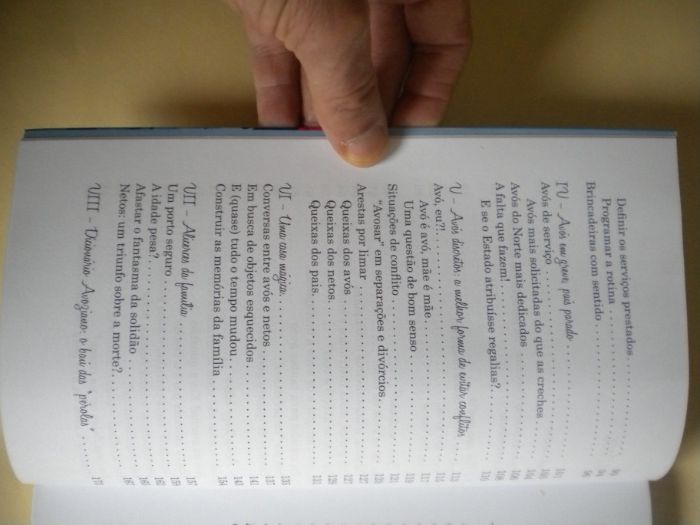 Definir os serviços prestados
Programar a rotina
Brincadeiras com sentido
IV – Avós em greve, país parado
Avós de serviço
Avós mais solicitadas do que as creches
Avós do Norte mais dedicados
A falta que fazem!
E se o Estado atribuísse regalias?
V – Avós discretos: a melhor forma de evitar conflitos
Avó, eu?!
Avó é avó, mãe é mãe
Uma questão de bom senso
Situações de conflito
"Avosar" em separações e divórcios
Arestas por limar
Queixas dos avós
Queixas dos netos
Queixas dos pais
VI – Uma casa mágica
Conversas entre avós e netos
Em busca de objetos esquecidos
E (quase) tudo o tempo mudou
Construir as memórias da família
VII – Alicerces da família
Um porto seguro
A idade pesa?
Afastar o fantasma da solidão
Netos: um triunfo sobre a morte?
VIII – Dicionário Avoziano: o baú das "pérolas"